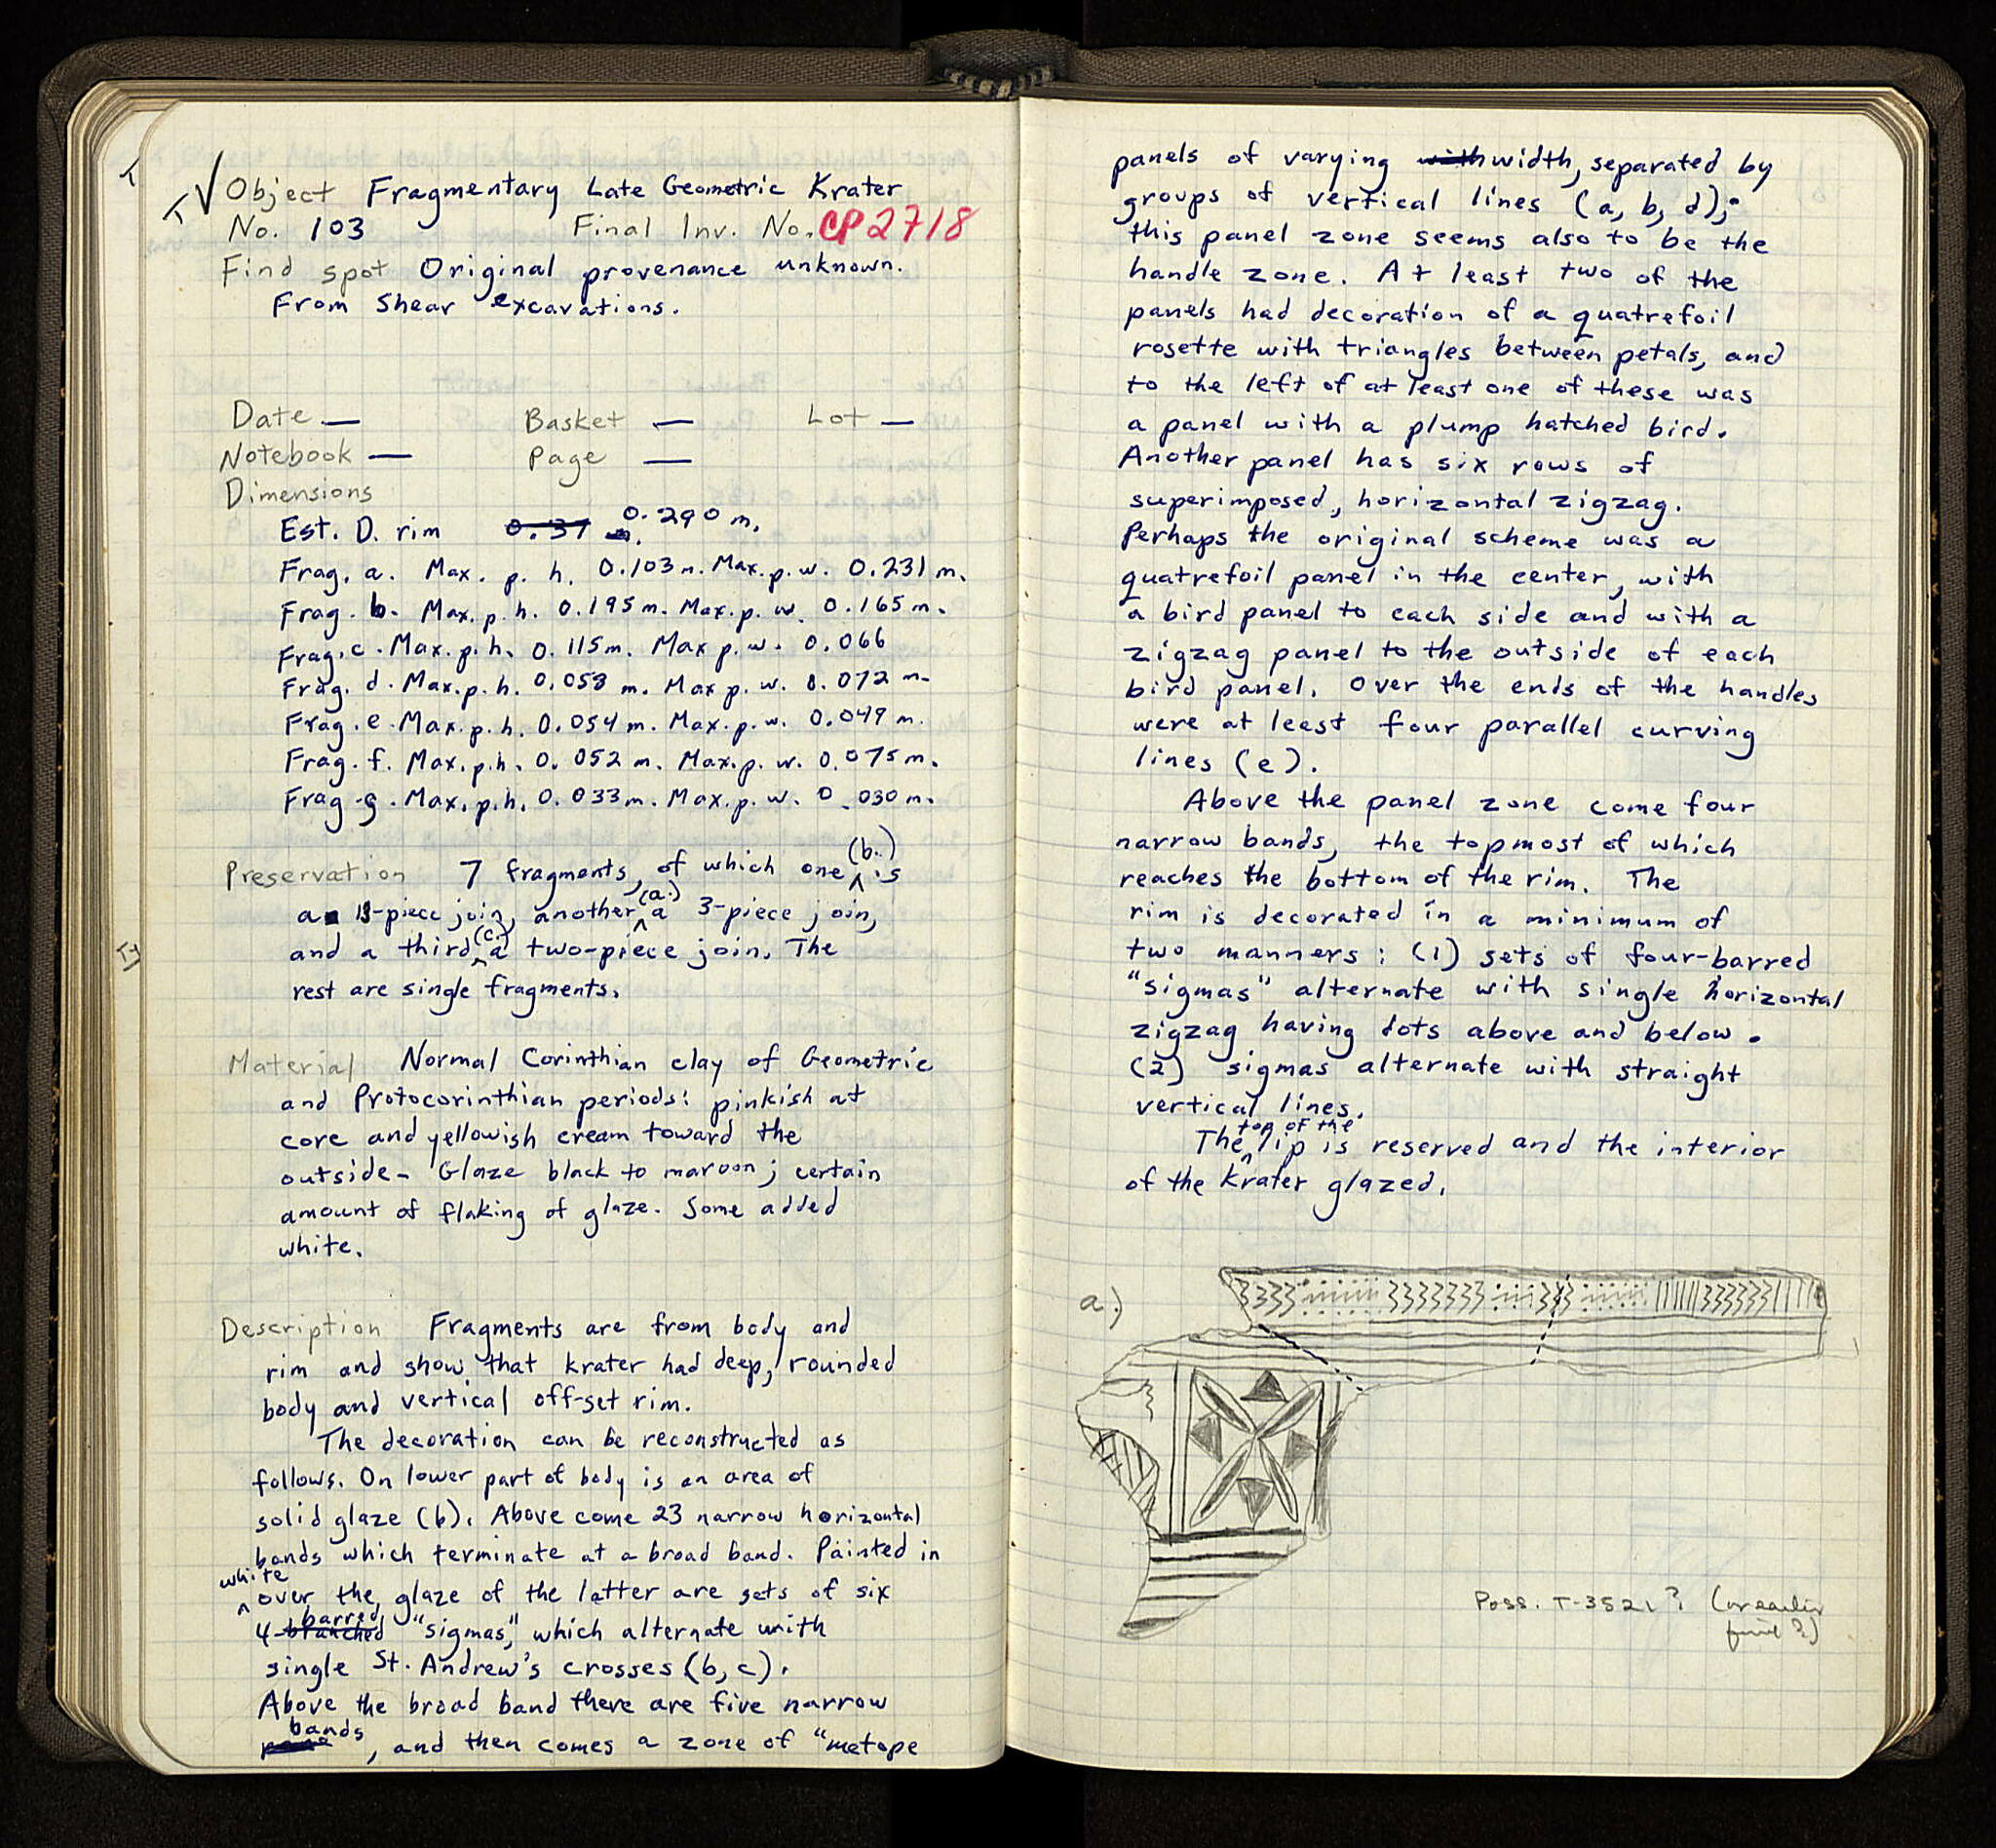 T
T √ Object Fragmentary Late Geometric Krater
No. 103 Final Inv. No. CP2718
Find spot Original provenance unknown.
From Shear excavations.
Date — Basket — Lot —
Notebook — Page —
Dimensions
Est. D. rim 0.37 m. 0.290 m.
Frag. a. Max. p. h. 0.103 m. Max. p. w. 0.231 m.
Frag. b. Max. p. h. 0.195 m. Max. p. w. 0.165 m.
Frag. c. Max. p. h. 0.115 m. Max p. w. 0.066
Frag. d. Max. p. h. 0.058 m. Max p. w. 0.072 m.
Frag. e. Max. p. h. 0.054 m. Max. p. w. 0.049 m.
Frag. f. Max. p. h. 0.052 m. Max. p. w. 0.075 m.
Frag. g. Max. p. h. 0.033 m. Max. p. w. 0.030 m.
Preservation 7 fragments, of which one (b.) is
a 13-piece join, another (a.) a 3-piece join,
and a third (c.) a two-piece join. The
rest are single fragments.
Material Normal Corinthian clay of Geometric
and Protocorinthian periods: pinkish at
core and yellowish cream toward the
outside. Glaze black to maroon; certain
amount of flaking of glaze. Some added
white.
Description Fragments are from body and
rim and show that krater had deep, rounded
body and vertical off-set rim.
The decoration can be reconstructed as
follows. On lower part of body is an area of
solid glaze (b). Above come 23 narrow horizontal
bands which terminate at a broad band. Painted in
white over the glaze of the latter are sets of six
4-branched barred "sigmas," which alternate with
single St. Andrew's crosses (b, c).
Above the broad band there are five narrow
bands, and then comes a zone of "metope
panels of varying with width, separated by
groups of vertical lines (a, b, d);
this panel zone seems also to be the
handle zone. At least two of the
panels had decoration of a quatrefoil
rosette with triangles between petals, and
to the left of at least one of these was
a panel with a plump hatched bird.
Another panel has six rows of
superimposed, horizontal zigzag.
Perhaps the original scheme was a
quatrefoil panel in the center, with
a bird panel to each side and with a
zigzag panel to the outside of each
bird panel. Over the ends of the handles
were at least four parallel curving
lines (e).
Above the panel zone come four
narrow bands, the topmost of which
reaches the bottom of the rim. The
rim is decorated in a minimum of
two manners: (1) sets of four-barred
"sigmas" alternate with single horizontal
zigzag having dots above and below.
(2) sigmas alternate with straight
vertical lines.
The top of the lip is reserved and the interior
of the krater glazed.
a.)
Poss. T-3521? (or earlier
find?)